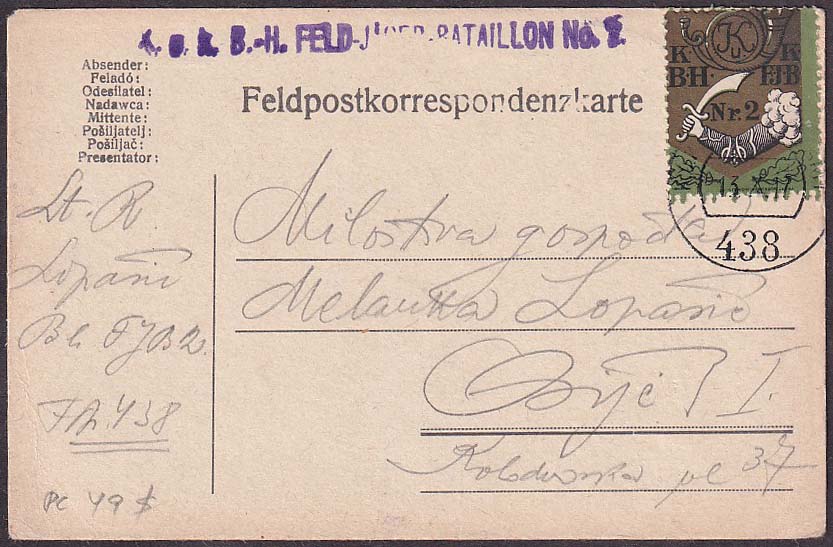 k. u. k. B.-H. FELD-JÄGER-BATAILLON No. 2.
K K
BH FJB
Nr. 2
13. X. 17
438
Absender:
Feladó:
Odesílatel:
Nadawca:
Mittente:
Pošiljatelj:
Pošiljač:
Presentator:
Feldpostkorrespondenzkarte
Lt. R.
Lopašić
Bh FJB 2.
FA. 438
PC 49 $
Milostiva gospođa
Lopašić
I.
ul 37